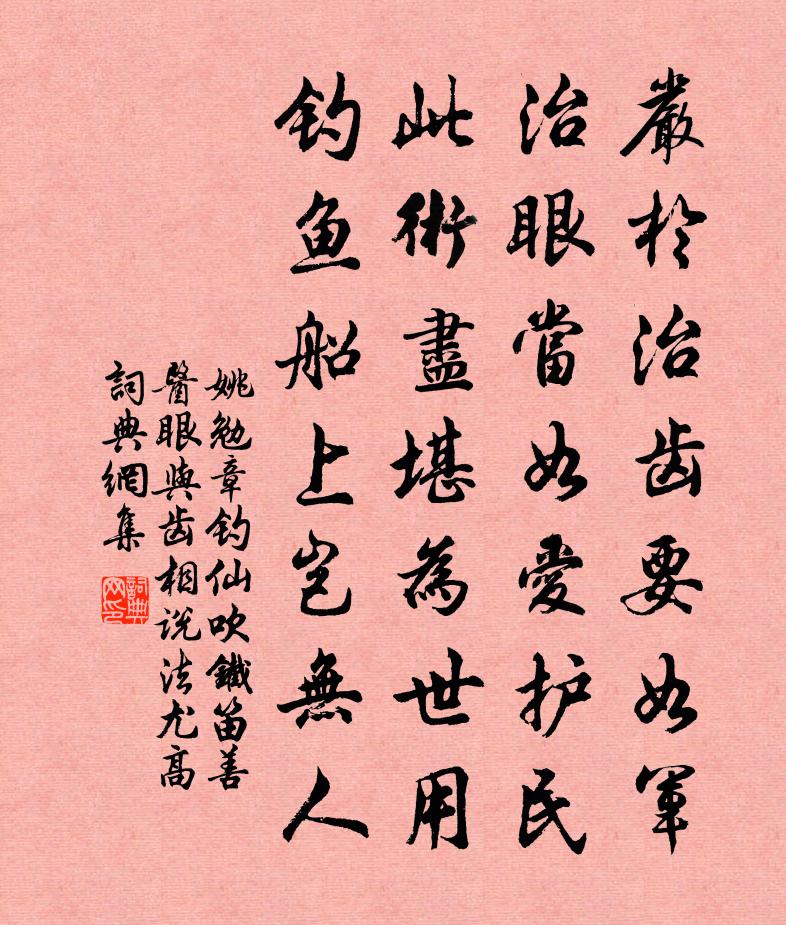 嚴於治齿要如軍
治眼當如愛护民
此術盡堪為世用
钓鱼船上岂無人
姚勉章钓仙吹鐵笛善
醫眼與齿相说法尤高
詞典網集
詞典网印